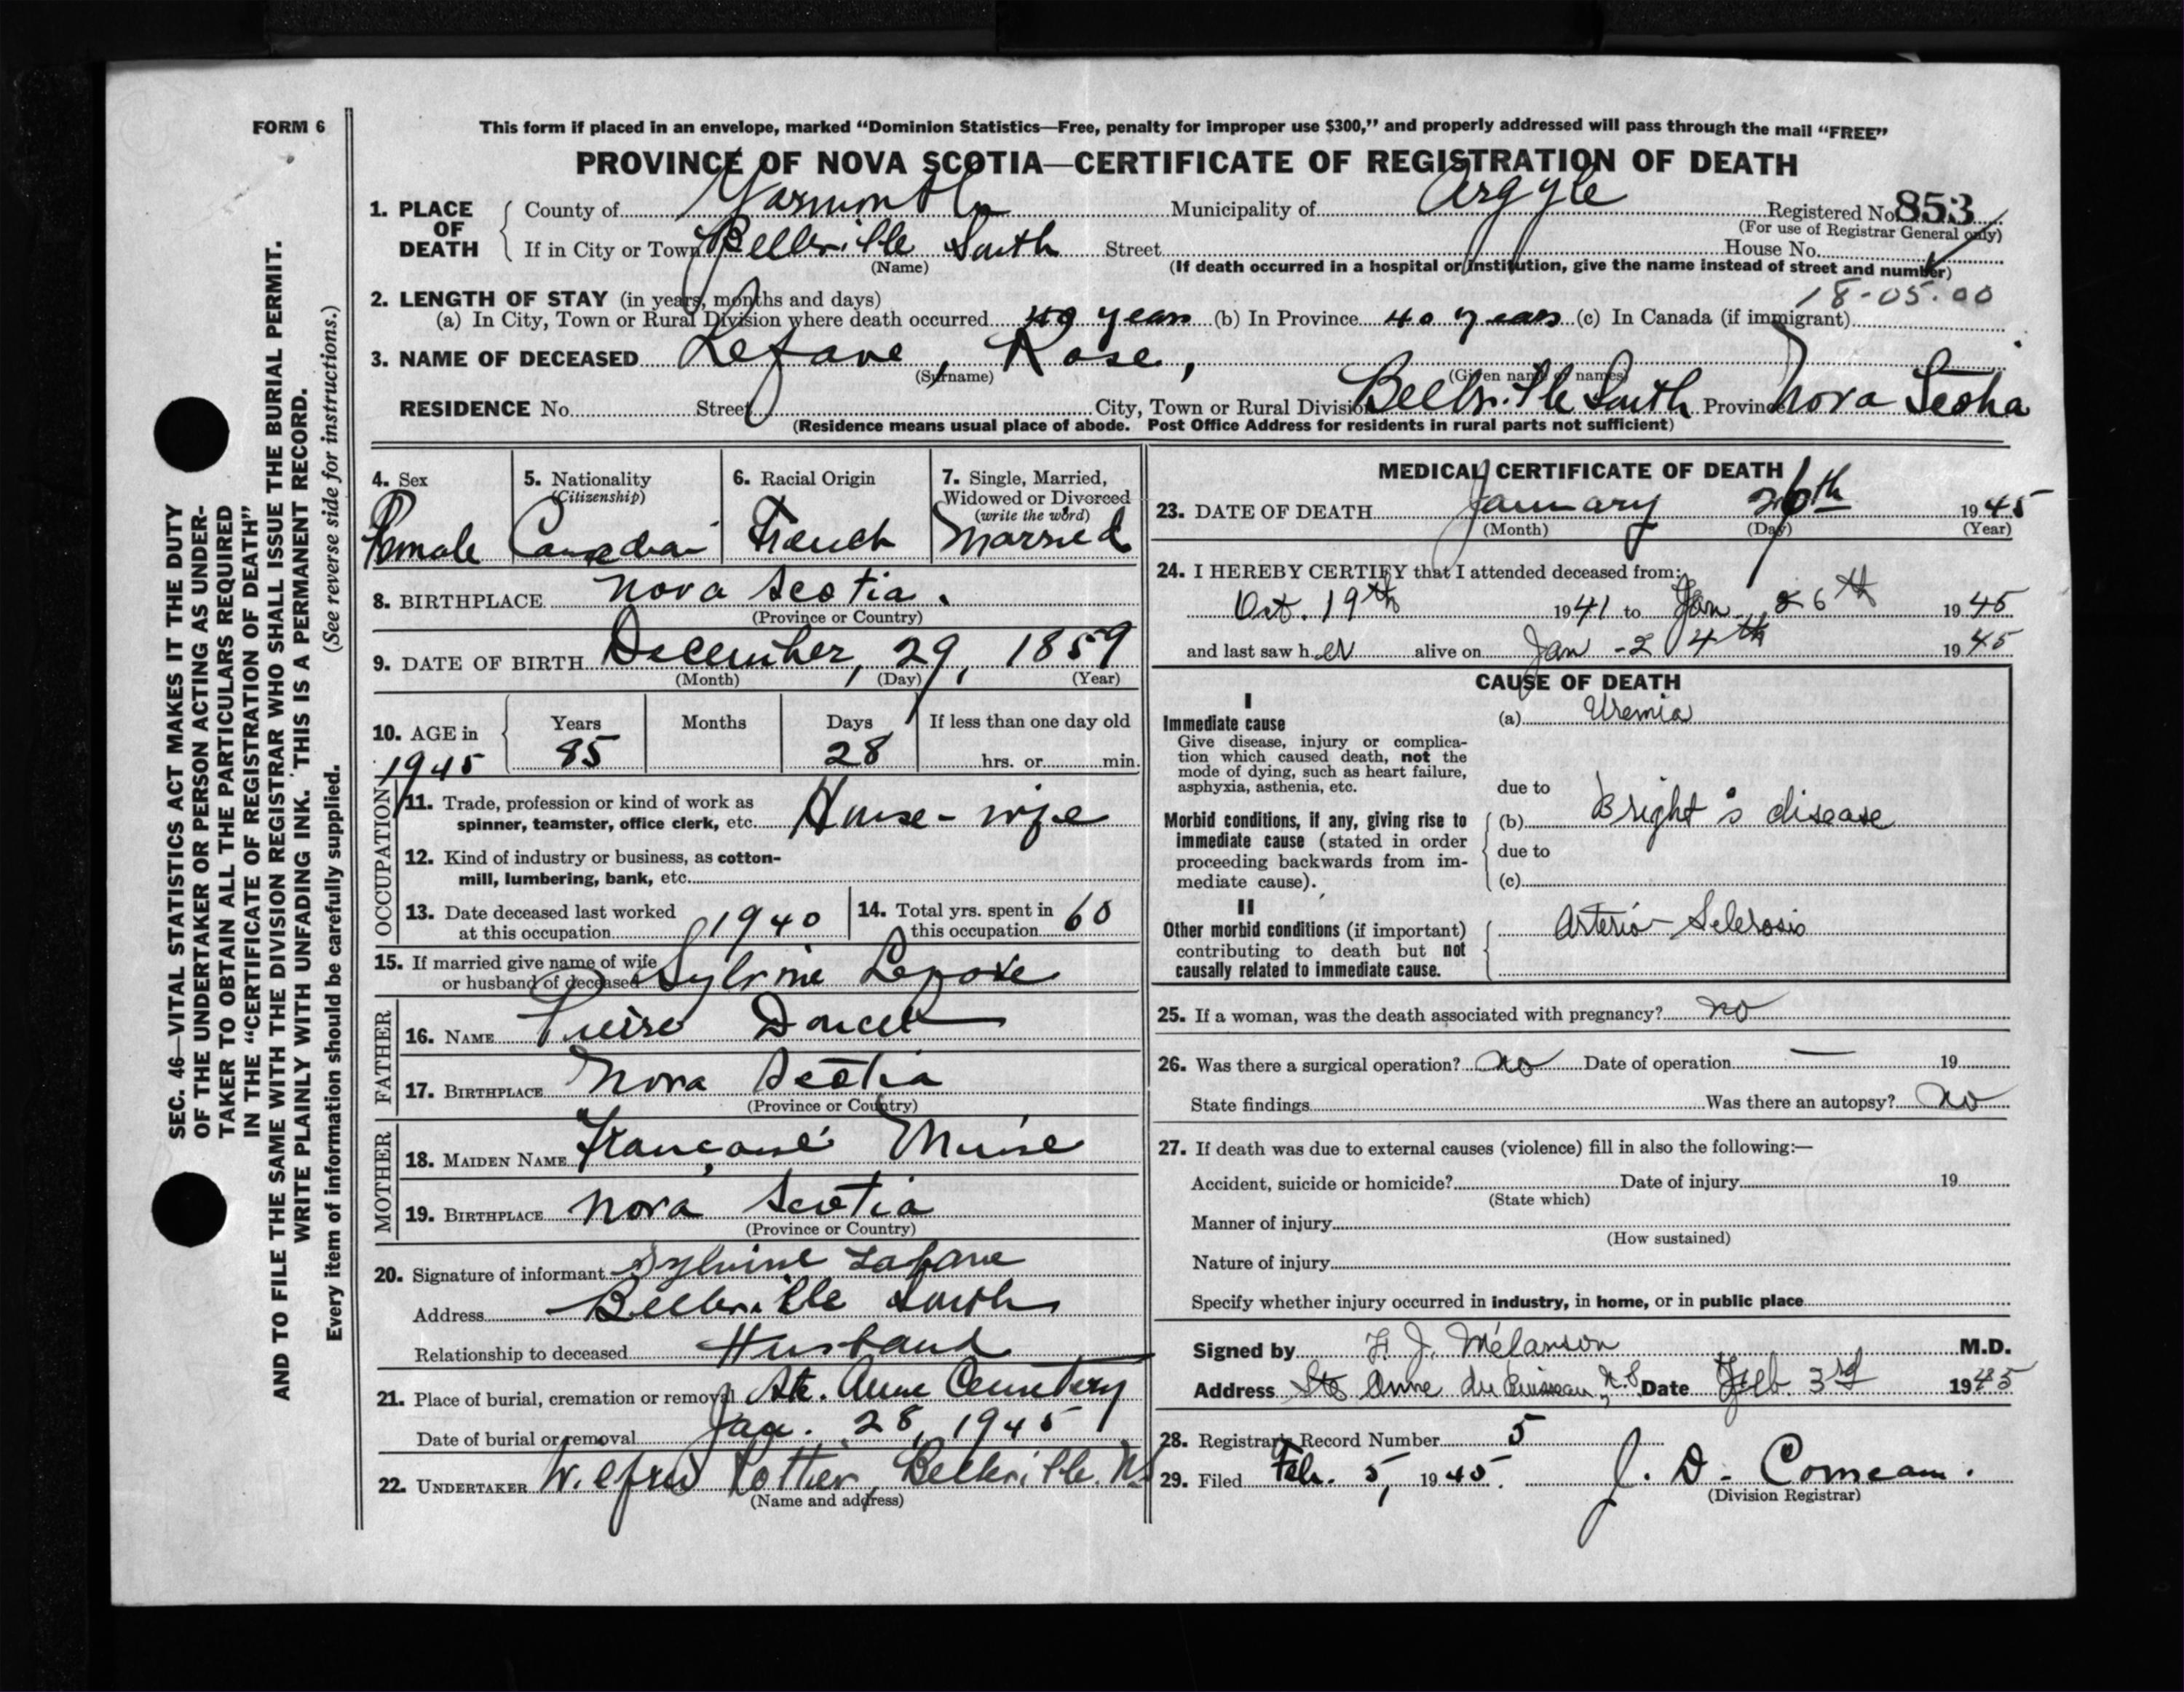 FORM 6
This form if placed in an envelope, marked “Dominion Statistics—Free, penalty for improper use $300,” and properly addressed will pass through the mail “FREE”
PROVINCE OF NOVA SCOTIA—CERTIFICATE OF REGISTRATION OF DEATH
1. PLACE OF DEATH
County of Yarmouth Municipality of Argyle Registered No. 853
(For use of Registrar General only)
If in City or Town Belleville South Street House No.
(Name) (If death occurred in a hospital or institution, give the name instead of street and number)
18-05.00
2. LENGTH OF STAY (in years, months and days)
(a) In City, Town or Rural Division where death occurred 40 years (b) In Province 40 years (c) In Canada (if immigrant)
3. NAME OF DECEASED Lefave, Rose,
(Surname) (Given name or names)
RESIDENCE No. Street City, Town or Rural Division Belleville South Province Nova Scotia
(Residence means usual place of abode. Post Office Address for residents in rural parts not sufficient)
4. Sex
Female
5. Nationality
(Citizenship)
Canadian
6. Racial Origin
French
7. Single, Married,
Widowed or Divorced
(write the word)
Married
8. BIRTHPLACE Nova Scotia.
(Province or Country)
9. DATE OF BIRTH December, 29, 1859
(Month) (Day) (Year)
10. AGE in Years Months Days If less than one day old
1945 85 28 hrs. or min.
OCCUPATION
11. Trade, profession or kind of work as
spinner, teamster, office clerk, etc. House-wife
12. Kind of industry or business, as cotton-
mill, lumbering, bank, etc.
13. Date deceased last worked
at this occupation 1940
14. Total yrs. spent in
this occupation 60
15. If married give name of wife
or husband of deceased Sylvine Lefave
FATHER
16. NAME Pierre Doucet
17. BIRTHPLACE Nova Scotia
(Province or Country)
MOTHER
18. MAIDEN NAME Muise
19. BIRTHPLACE Nova Scotia
(Province or Country)
20. Signature of informant Sylvine Lafave
Address Belleville South
Relationship to deceased Husband
21. Place of burial, cremation or removal Ste. Anne Cemetery
Date of burial or removal Jan. 28, 1945
22. UNDERTAKER Wilfred Pottier, Belleville. N.S
(Name and address)
MEDICAL CERTIFICATE OF DEATH
23. DATE OF DEATH January 26th 1945
(Month) (Day) (Year)
24. I HEREBY CERTIFY that I attended deceased from:
Oct. 19th 1941 to Jan. 26th 1945
and last saw her alive on Jan-24th 1945
CAUSE OF DEATH
I
Immediate cause
Give disease, injury or complica-
tion which caused death, not the
mode of dying, such as heart failure,
asphyxia, asthenia, etc.
(a) Uremia
due to
Morbid conditions, if any, giving rise to
immediate cause (stated in order
proceeding backwards from im-
mediate cause).
(b) Bright's disease
due to
(c)
II
Other morbid conditions (if important)
contributing to death but not
causally related to immediate cause.
Arterio-Sclerosis
25. If a woman, was the death associated with pregnancy? no
26. Was there a surgical operation? no Date of operation — 19
State findings Was there an autopsy? no
27. If death was due to external causes (violence) fill in also the following:—
Accident, suicide or homicide? Date of injury 19
(State which)
Manner of injury
(How sustained)
Nature of injury
Specify whether injury occurred in industry, in home, or in public place
Signed by F. J. Mélanson M.D.
Address Ste Anne du Ruisseau, N.S. Date Feb. 3rd 1945
28. Registrar's Record Number 5
29. Filed Feb. 5, 1945. J. D. Comeau.
(Division Registrar)
SEC. 46—VITAL STATISTICS ACT MAKES IT THE DUTY
OF THE UNDERTAKER OR PERSON ACTING AS UNDER-
TAKER TO OBTAIN ALL THE PARTICULARS REQUIRED
IN THE “CERTIFICATE OF REGISTRATION OF DEATH”
AND TO FILE THE SAME WITH THE DIVISION REGISTRAR WHO SHALL ISSUE THE BURIAL PERMIT.
WRITE PLAINLY WITH UNFADING INK. THIS IS A PERMANENT RECORD.
Every item of information should be carefully supplied. (See reverse side for instructions.)